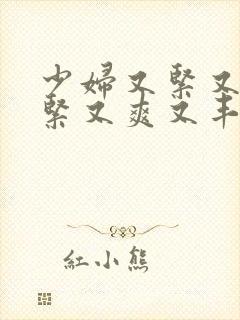 少婦又緊又
緊又爽又丰
紅小熊